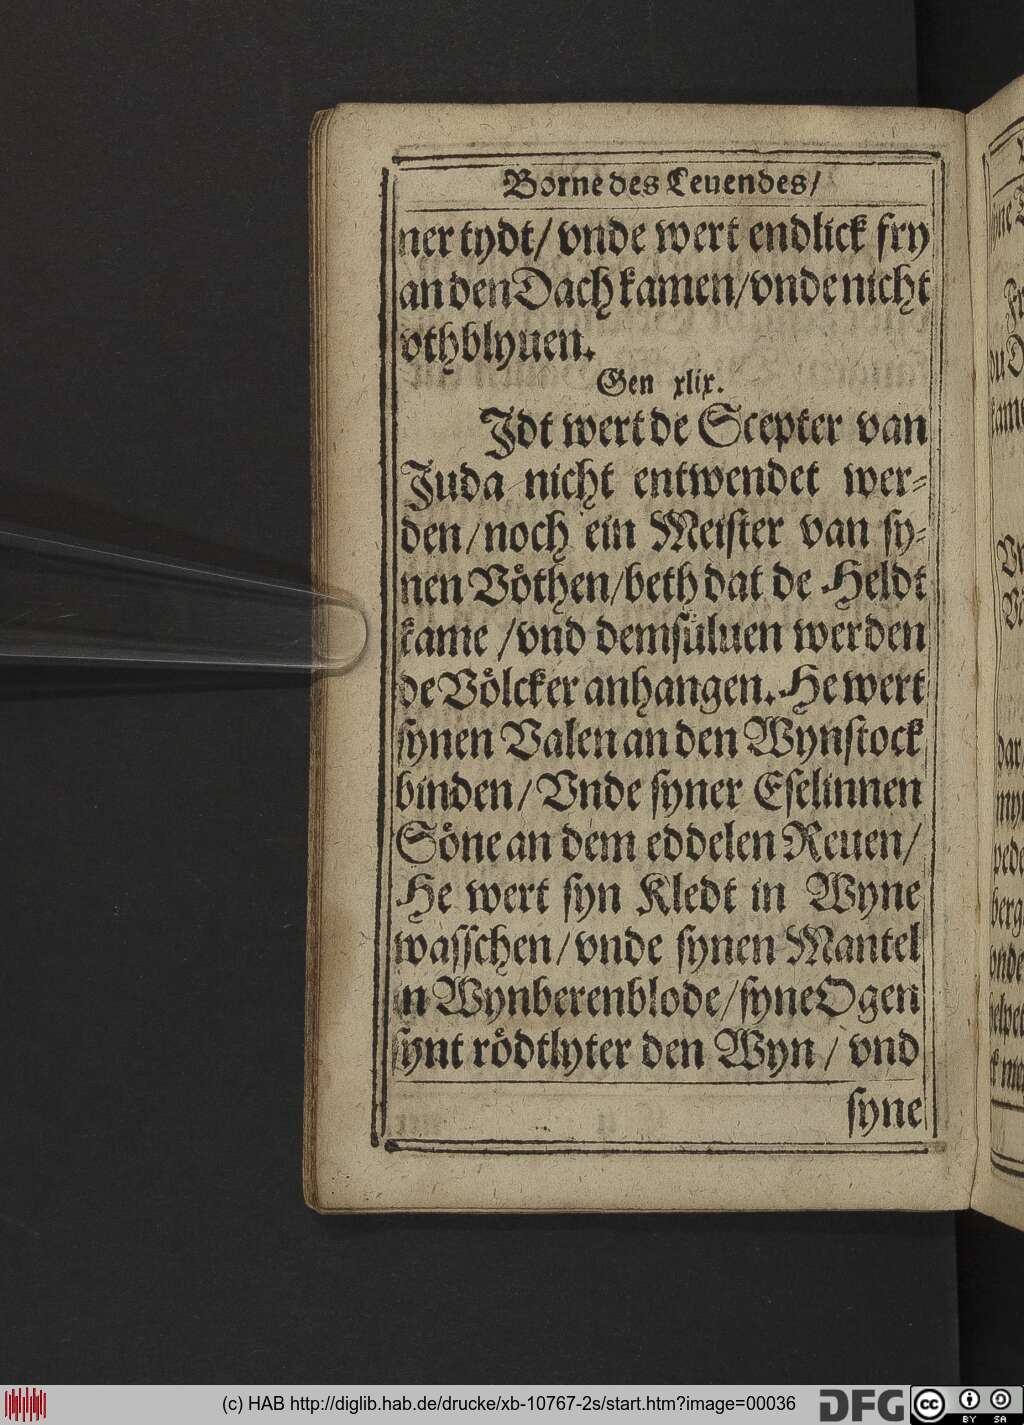 Borne des Leuendes/
ner tydt/ vnde wert endlick fry
an den Dach kamen/vnde nicht
vthblyuen.
Gen xlix.
Jdt wert de Scepter van
Juda nicht entwendet wer⸗
den/noch ein Meister van sy⸗
nen Vöthen/beth dat de Heldt
kame /vnd demsüluen werden
de Völcker anhangen. He wert
synen Valen an den Wynstock
binden/ Vnde syner Eselinnen
Söne an dem eddelen Reuen/
He wert syn Kledt in Wyne
wasschen/ vnde synen Mantel
in Wynberenblode/syne Ogen
synt rödtlyter den Wyn / vnd
syne
(c) HAB http://diglib.hab.de/drucke/xb-10767-2s/start.htm?image=00036
DFG
cc BY SA